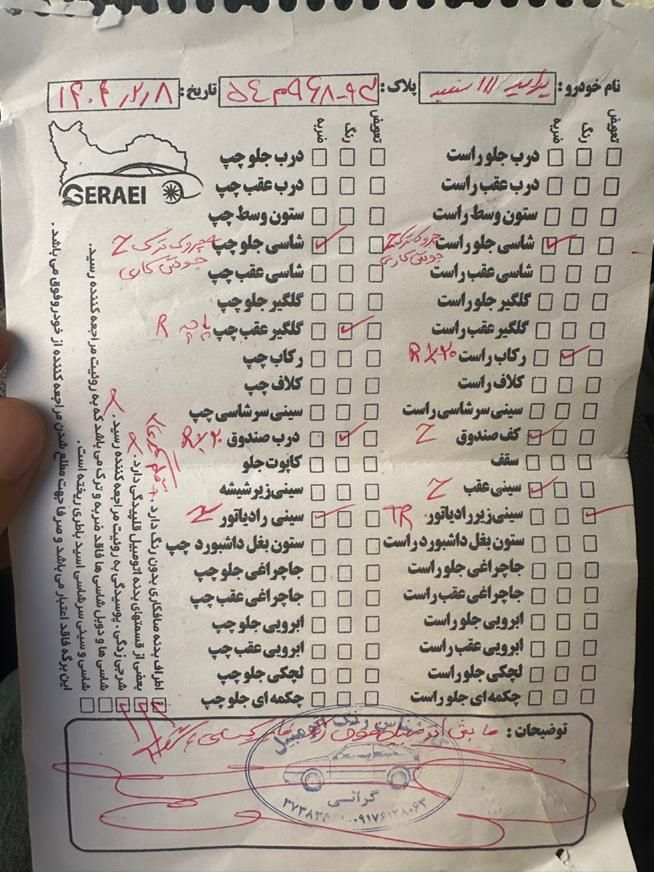 نام خودرو : پراید 111 سفید پلاک : تاریخ :
تعویض رنگ ضربه
تعویض رنگ ضربه
GERAEI
درب جلو راست
درب عقب راست
ستون وسط راست
شاسی جلو راست چروک ترک Z
جوش کاری
شاسی عقب راست
گلگیر جلو راست
گلگیر عقب راست
رکاب راست R
کلاف راست
سینی سر شاسی راست
کف صندوق Z
سقف
سینی عقب Z
سینی زیر رادیاتور TR
ستون بغل داشبورد راست
جاچراغی جلو راست
جاچراغی عقب راست
ابرویی جلو راست
ابرویی عقب راست
لچکی جلو راست
چکمه ای جلو راست
درب جلو چپ
درب عقب چپ
ستون وسط چپ
شاسی جلو چپ چروک ترک Z
جوش کاری
شاسی عقب چپ
گلگیر جلو چپ
گلگیر عقب چپ پایه R
رکاب چپ
کلاف چپ
سینی سر شاسی چپ
درب صندوق R
کاپوت جلو
سینی زیر شیشه
سینی رادیاتور Z
ستون بغل داشبورد چپ
جاچراغی جلو چپ
جاچراغی عقب چپ
ابرویی جلو چپ
ابرویی عقب چپ
لچکی جلو چپ
چکمه ای جلو چپ
اطراف بدنه صافکاری بدون رنگ دارد .
بعضی از قسمتهای بدنه اتومبیل قلپیدگی دارد .
شرجی زدگی . پوسیدگی به روئیت مراجعه کننده رسید .
شاسی ها و دوبل شاسی ها فاقد ضربه و ترک می باشد که به روئیت مراجعه کننده رسید .
شاسی و سینی سرشاسی اسید باطری ریخته است .
این برگه فاقد اعتبار می باشد و صرفا جهت مطلع شدن مراجعه کننده از خودرو فوق می باشد .
توضیحات :
رنگ اتومبیل
گرائی